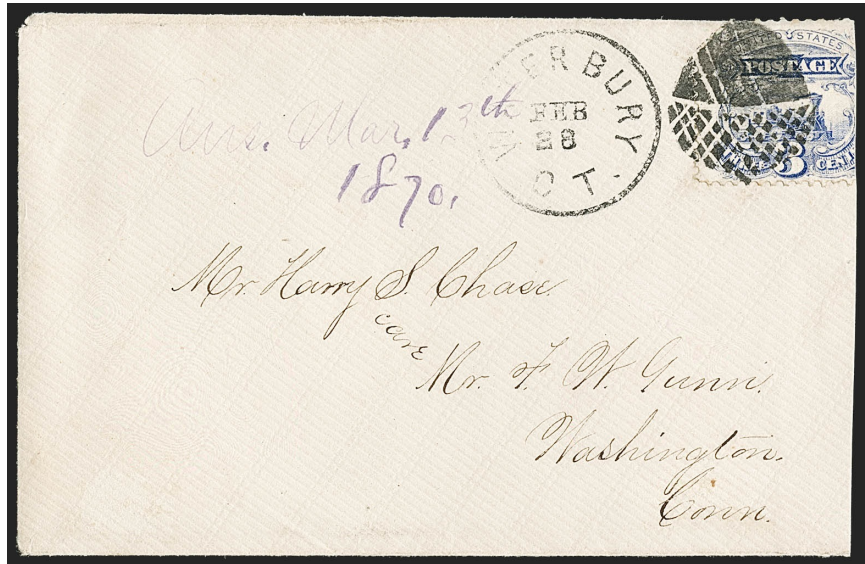 Ans. Mar. 13th
1870.
WATERBURY
FEB
28
CT.
UNITED STATES
POSTAGE
THREE 3 CENTS
Mr. Harry S. Chase.
care
Mr. F. W. Gunn.
Washington.
Conn.